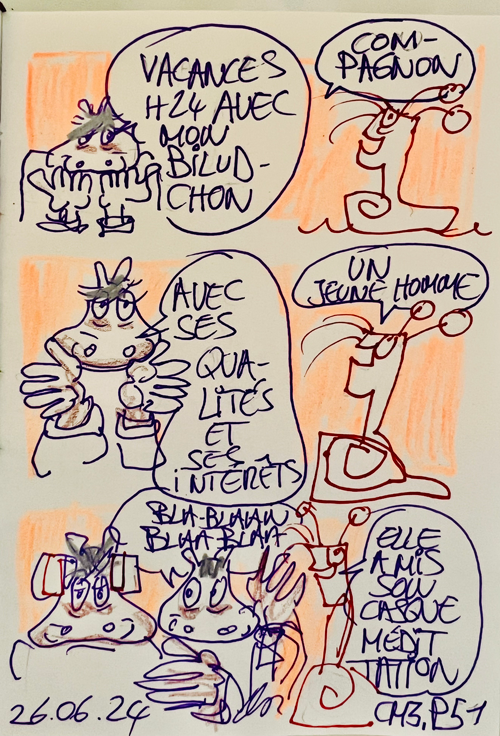 VACANCES
H24 AVEC
MON
BILUD-
CHON
COM-
PAGNON
AVEC
SES
QUA-
LITÉS
ET
SES
INTÉRÊTS
UN
JEUNE HOMME
BLA-BLAAAN
BLAA-BLAA
ELLE
A MIS
SON
CASQUE
MÉDIT
TATION
26.06.24
CH3, P51